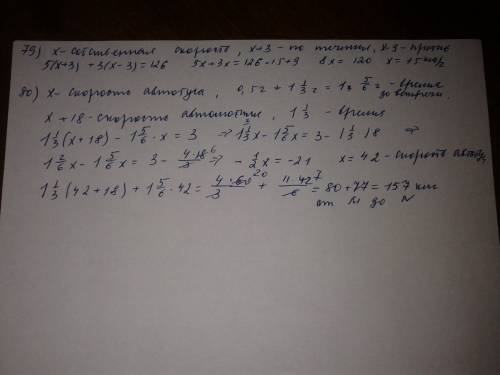 79) x - собственная скорость, x+3 - по течения, x-3 - против
5(x+3) + 3(x-3) = 126    5x+3x = 126-15+9    8x = 120    x = 15 км/ч
80) x - скорость автобуса, 0,5 г + 1 1/3 г = 1 5/6 г - время до встречи.
x + 18 - скорость автомашины, 1 1/3 - время
1 1/3 (x+18) - 1 5/6 · x = 3 ⇒ 1 1/3 x - 1 5/6 x = 3 - 1 1/3 · 18 ⇒
1 2/6 x - 1 5/6 x = 3 - 4·18 6/3 ⇒ - 1/2 x = -21    x = 42 - скорость автобус
1 1/3 (42 + 18) + 1 5/6 · 42 = 4·60 20/3 + 11·42 7/6 = 80 + 77 = 157 км
от M до N